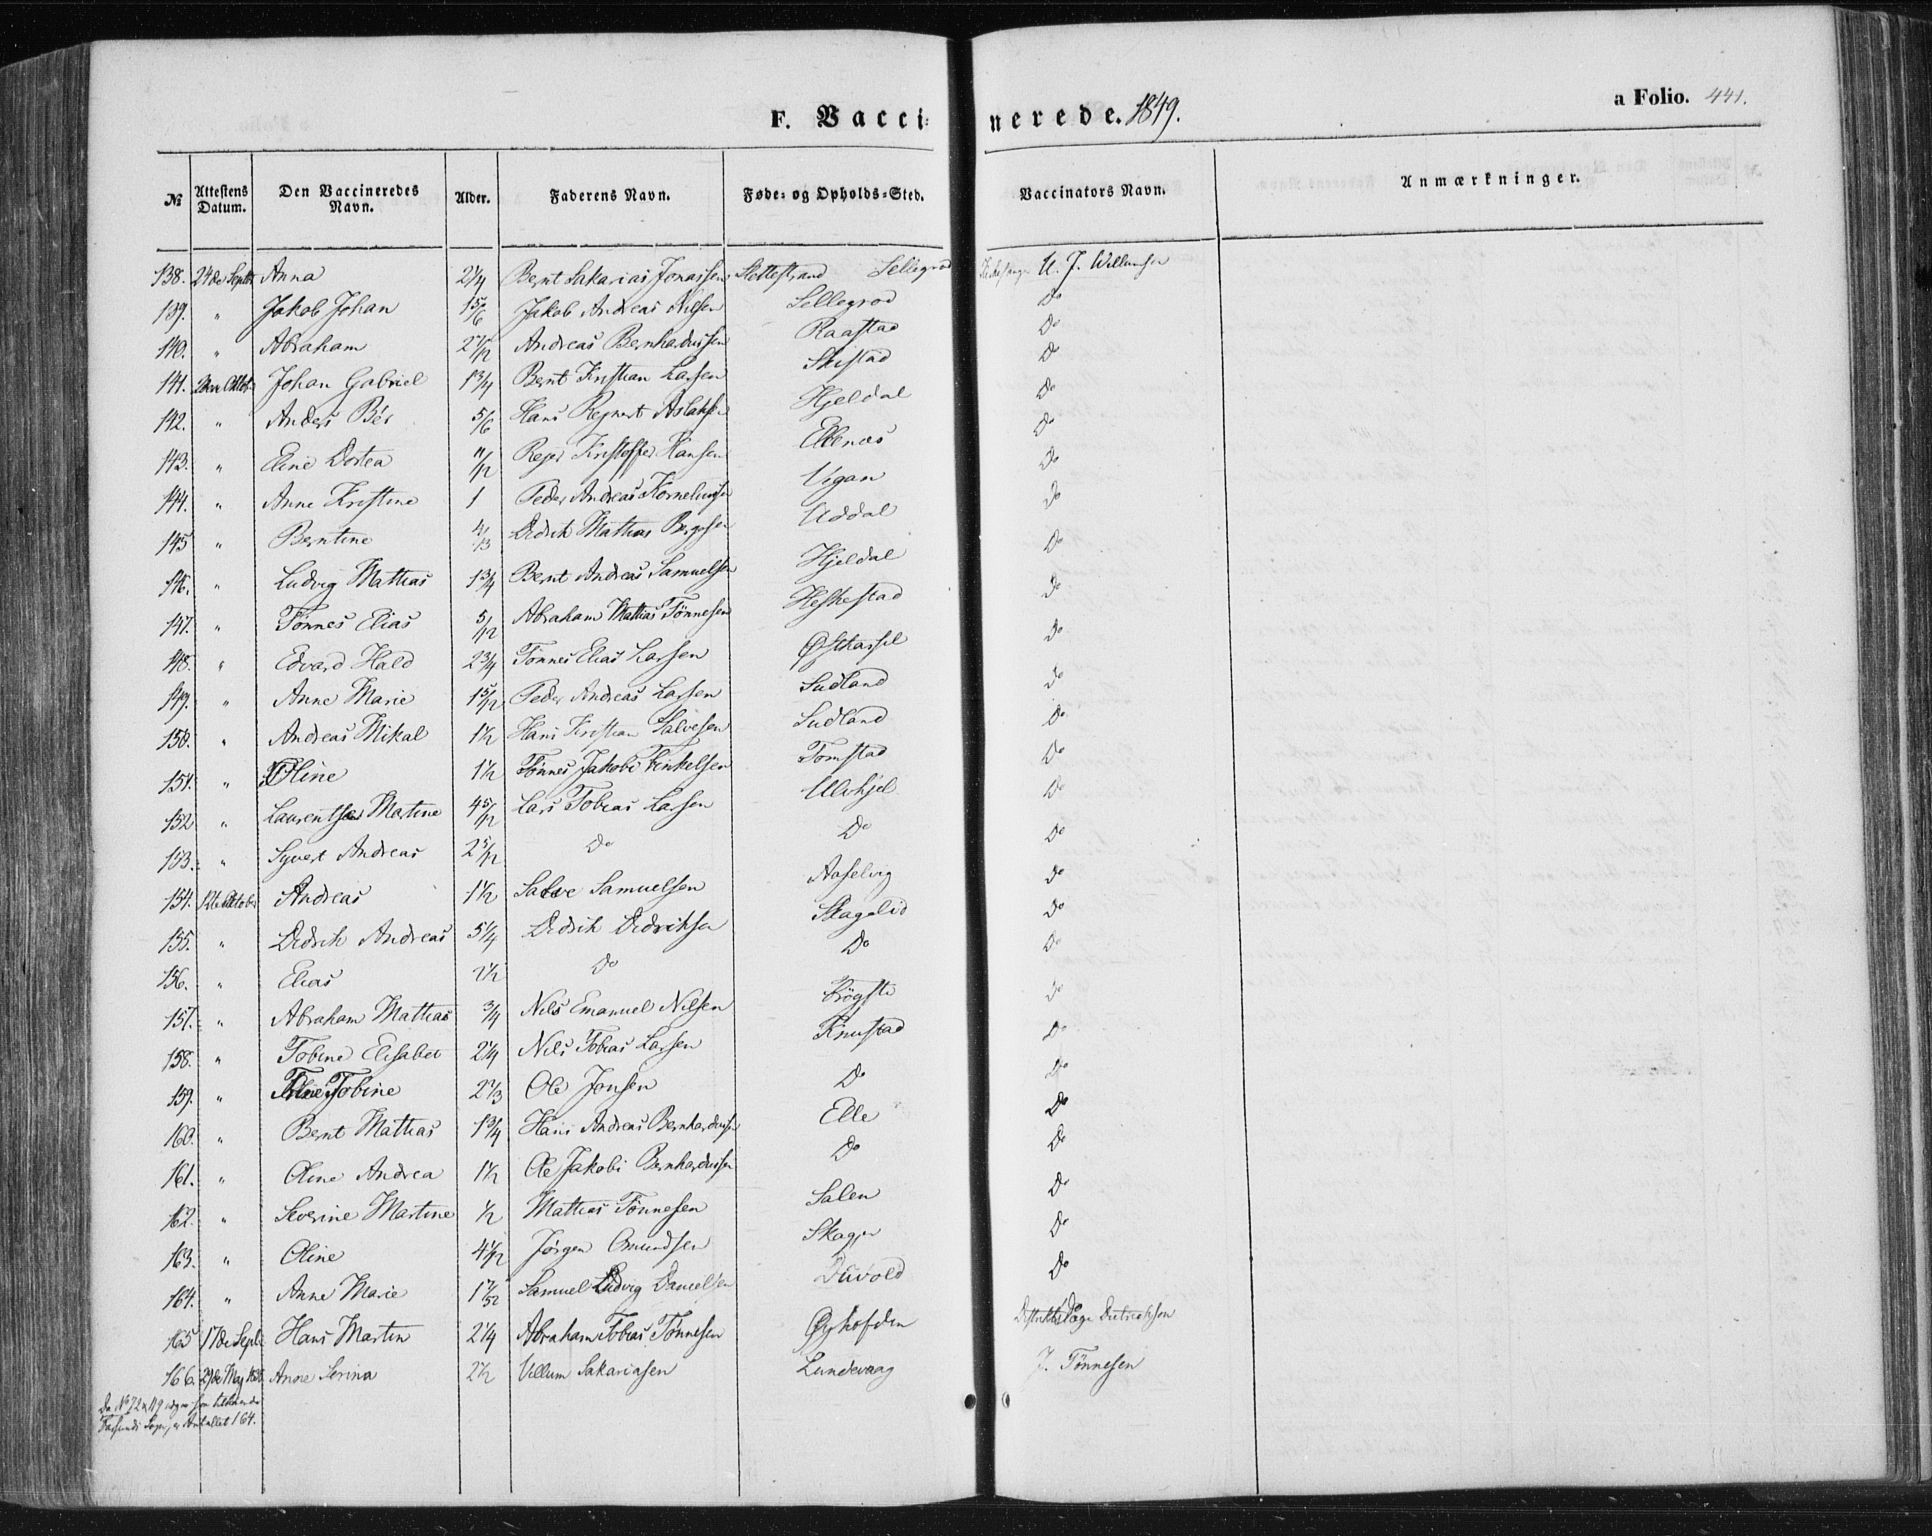 F. Vaccinerede. 1849.
a Folio. 441.
№ Attestens Datum. Den Vaccineredes Navn. Alder. Faderens Navn. Føde- og Opholds-Sted. Vaccinators Navn. Anmærkninger.
138. 24de Septbr Anna 2 1/4 Bernt Sakarias Jonassen Slettestrand Sellegrod Kirkesanger U. J. Willumsen
139. " Jakob Johan 1 5/6 Jakob Andreas Nilsen Sellegrod Do
140. " Abraham 2 7/12 Andreas Bernhardussen Raastad Do
141. Octob. Johan Gabriel 1 3/4 Bernt Kristian Larsen Skistad Do
142. " Anders Bér 5/6 Hans Rejnert Aslaksen Hjeldal Do
143. " Eline Dortea 11/12 Rejer Kristoffer Hansen Ellenæs Do
144. " Anne Kristine 1 Peder Andreas Korneliussen Vigan Do
145 " Berntine 4/13 Didrik Mathias Uddal Do
146. " Ludvig Mathias 1 3/4 Bernt Andreas Samuelsen Hjeldal Do
147. " Tönnes Elias 5/12 Abraham Mathias Tönnesen Heskestad Do
148. " Edvard Hald 2 3/4 Tönnes Elias Larsen Østhassel Do
149. " Anne Marie 1 5/12 Peder Andreas Larsen Sudland Do
150. " Andreas Mikal 1 1/2 Hans Kristian Salvesen Sudland Do
151. " Oline 1 1/2 Tönnes Jakobi Tinkelsen Tomstad Do
152 " Martine 4 5/12 Lars Tobias Larsen Ulvhjel Do
153. " Syvert Andreas 2 5/12 Do Do Do
154. 12te Oktober Andreas 1 1/2 Salve Samuelsen Aaselvig Do
155. " Didrik Andreas 5 1/4 Didrik Didriksen Skagelid Do
156. " Elias 1/2 Do Do Do
157. " Abraham Mathias 3/4 Nils Emanuel Nilsen Do
158. " Tobine Elisabet 2 1/4 Nils Tobias Larsen Knustad Do
159. " Tobine 2 1/3 Ole Jonsen Do Do
160. " Bernt Mathias 1 3/4 Hans Andreas Bernhardusen Elle Do
161. " Oline Andrea 1 1/2 Ole Jakobi Bernhardussen Do Do
162. " Severine Martine 1/2 Mathias Tönnesen Salen Do
163. " Oline 4 1/12 Jörgen Omundsen Skagen Do
164. " Anne Marie 1 7/52 Samuel Ludvig Danielsen Duvold Do
165 17de Sept. Hans Martin 2 1/4 Abraham Tobias Tönnesen Distriktslæge Dietrichson
166. 27de Maj Anne Serina 2 1/2 Villum Sakariasen Lundevaag J. Tönnesen
Da No 72 & 119 tilhörende
Farsunds Sogn, er Antallet 164.